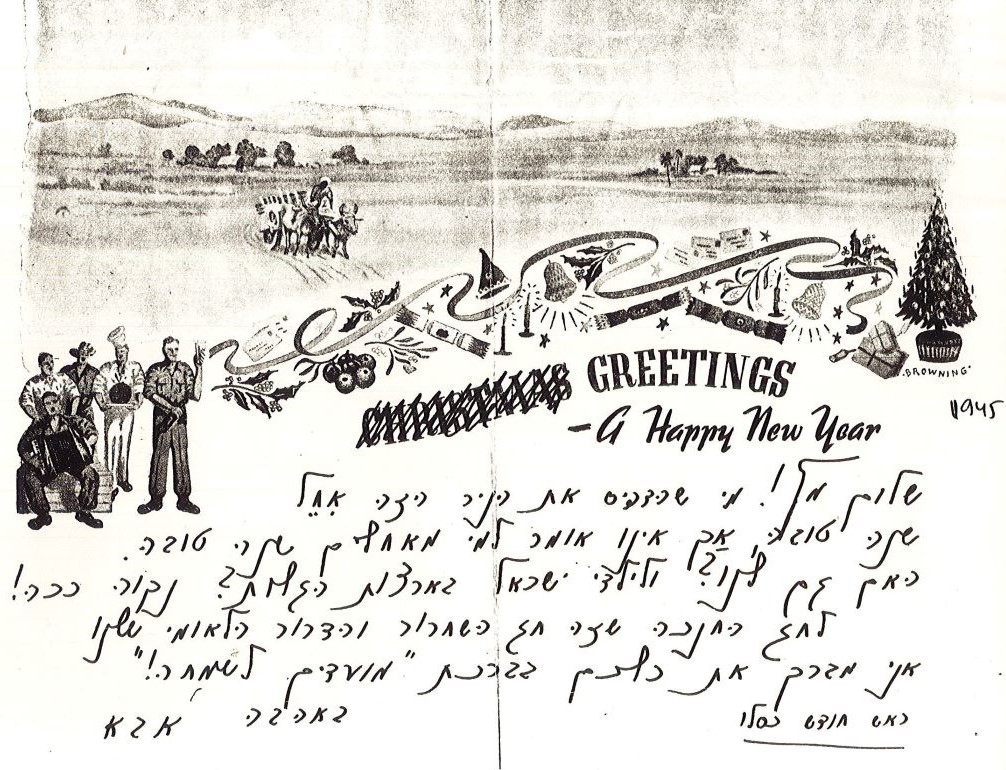 GREETINGS
BROWNING
– A Happy New Year
1945
שלום ! מי שהדפיס את הניר הזה אִחֵל
שנה טובה, אך אינו אומר למי מאחלים שנה טובה.
האם גם לנו? ולילדי ישראל בארצות הגלות? נקוה ככה!
לחג החנכה שזה חג השחרור והדרור הלאומי שלנו
אני מברך את כולכם בברכת "מועדים לשמחה!"
באהבה אבא
ראש חודש כסלו